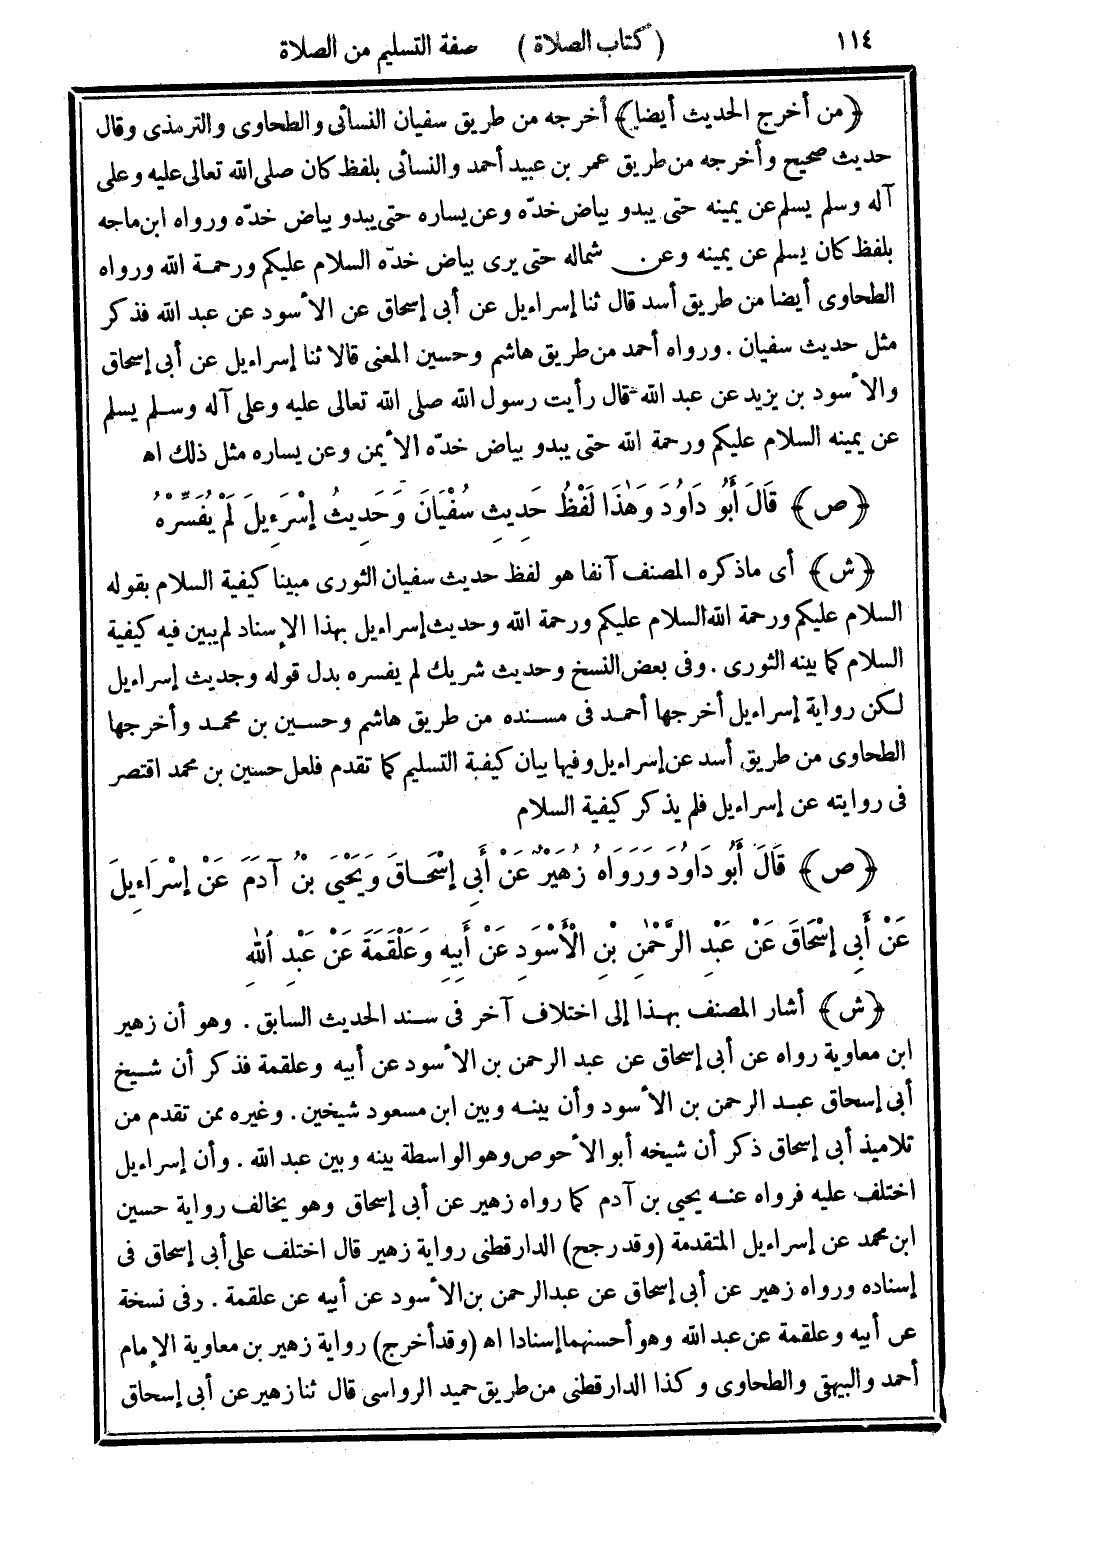 ١١٤ ( كتاب الصلاة ) صفة التسليم من الصلاة
﴿من أخرج الحديث أيضا﴾ أخرجه من طريق سفيان النسائى والطحاوى والترمذى وقال
حديث صحيح وأخرجه من طريق عمر بن عبيد أحمد والنسائى بلفظ كان صلى الله تعالى عليه وعلى
آله وسلم يسلم عن يمينه حتى يبدو بياض خدّه وعن يساره حتى يبدو بياض خدّه ورواه ابن ماجه
بلفظ كان يسلم عن يمينه وعن شماله حتى يرى بياض خدّه السلام عليكم ورحمة الله ورواه
الطحاوى أيضا من طريق أسد قال ثنا إسراءيل عن أبى إسحاق عن الأسود عن عبد الله فذكر
مثل حديث سفيان . ورواه أحمد من طريق هاشم وحسين المعنى قالا ثنا إسراءيل عن أبى إسحاق
والأسود بن يزيد عن عبد الله قال رأيت رسول الله صلى الله تعالى عليه وعلى آله وسلم يسلم
عن يمينه السلام عليكم ورحمة الله حتى يبدو بياض خدّه الأيمن وعن يساره مثل ذلك اه
﴿ص﴾ قَالَ أَبُو دَاوُدَ وَهٰذَا لَفْظُ حَدِيثِ سُفْيَانَ وَحَدِيثُ إِسْرَءِيلَ لَمْ يُفَسِّرْهُ
﴿ش﴾ أى ماذكره المصنف آنفا هو لفظ حديث سفيان الثورى مبينا كيفية السلام بقوله
السلام عليكم ورحمة الله السلام عليكم ورحمة الله وحديث إسراءيل بهذا الإسناد لم يبين فيه كيفية
السلام كما بينه الثورى . وفى بعض النسخ وحديث شريك لم يفسره بدل قوله وحديث إسراءيل
لكن رواية إسراءيل أخرجها أحمد فى مسنده من طريق هاشم وحسين بن محمد وأخرجها
الطحاوى من طريق أسد عن إسراءيل وفيها بيان كيفية التسليم كما تقدم فلعل حسين بن محمد اقتصر
فى روايته عن إسراءيل فلم يذكر كيفية السلام
﴿ص﴾ قَالَ أَبُو دَاوُدَ وَرَوَاهُ زُهَيْرٌ عَنْ أَبِى إِسْحَاقَ وَيَحْيَى بْنُ آدَمَ عَنْ إِسْرَاءِيلَ
عَنْ أَبِى إِسْحَاقَ عَنْ عَبْدِ الرَّحْمٰنِ بْنِ الْأَسْوَدِ عَنْ أَبِيهِ وَعَلْقَمَةَ عَنْ عَبْدِ اللهِ
﴿ش﴾ أشار المصنف بهذا إلى اختلاف آخر فى سند الحديث السابق . وهو أن زهير
ابن معاوية رواه عن أبى إسحاق عن عبد الرحمن بن الأسود عن أبيه وعلقمة فذكر أن شيخ
أبى إسحاق عبد الرحمن بن الأسود وأن بينه وبين ابن مسعود شيخين . وغيره ممن تقدم من
تلاميذ أبى إسحاق ذكر أن شيخه أبو الأحوص وهو الواسطة بينه وبين عبد الله . وأن إسراءيل
اختلف عليه فرواه عنه يحيى بن آدم كما رواه زهير عن أبى إسحاق وهو يخالف رواية حسين
ابن محمد عن إسراءيل المتقدمة (وقد رجح) الدارقطنى رواية زهير قال اختلف على أبى إسحاق فى
إسناده ورواه زهير عن أبى إسحاق عن عبد الرحمن بن الأسود عن أبيه عن علقمة . وفى نسخة
عن أبيه وعلقمة عن عبد الله وهو أحسنهما إسنادا اه (وقد أخرج) رواية زهير بن معاوية الإمام
أحمد والبيهقى والطحاوى وكذا الدارقطنى من طريق حميد الرواسى قال ثنا زهير عن أبى إسحاق